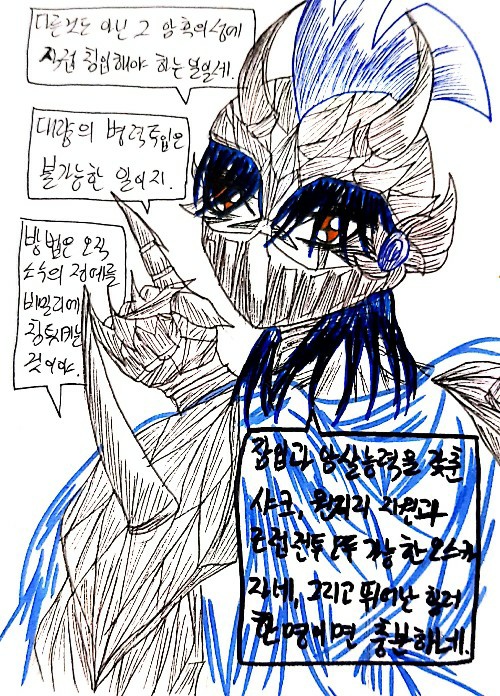 다른것도 아닌 그 암흑의성에
직접 침입해야 하는 일일세.
대량의 병력투입은
불가능한 일이지.
방법은 오직
소수의 정예를
비밀리에
침투시키는
것이야.
잠입과 암살능력을 갖춘
샤코, 원거리 지원과
근접전투 모두 가능한 오스카
자네, 그리고 뛰어난 힐러
한명이면 충분하네.